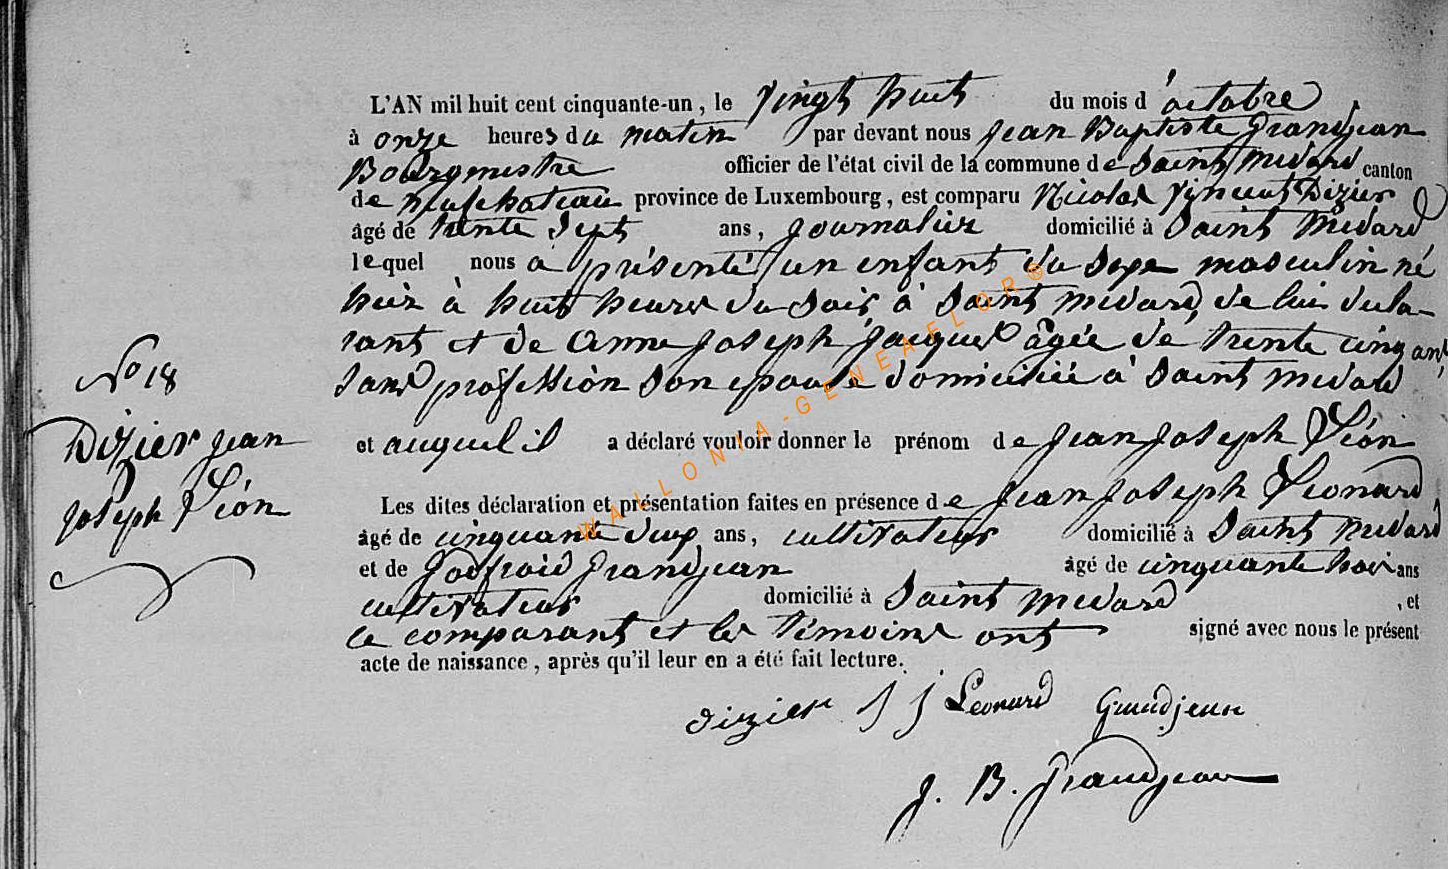 L'AN mil huit cent cinquante-un, le vingt huit du mois d'octobre,
à onze heures du matin par devant nous Jean Baptiste Grandjean
Bourgmestre officier de l'état civil de la commune de Saint Medard canton
de Neufchateau province de Luxembourg, est comparu Nicolas Vincent Dizier
âgé de trente sept ans, journalier domicilié à Saint Medard
lequel nous a présenté un enfant du sexe masculin né
hier à huit heures du soir, à Saint Medard, de lui decla-
rant et de Anne Joseph Jacques âgée de trente cinq ans,
sans profession son epouse domiciliée à Saint Medard
et auquel il a déclaré vouloir donner le prénom de Jean Joseph Léon
Les dites déclaration et présentation faites en présence de Jean Joseph Léonard,
âgé de cinquante deux ans, cultivateur domicilié à Saint Medard
et de Godfroid Grandjean âgé de cinquante trois ans
cultivateur domicilié à Saint Medard, et
le comparant et les témoins ont signé avec nous le présent
acte de naissance, après qu'il leur en a été fait lecture.
dizier J J Leonard Grandjean
J. B. Grandjean
No 18
Dizier Jean
Joseph Léon
WALLONIA-GENEAFLOR®